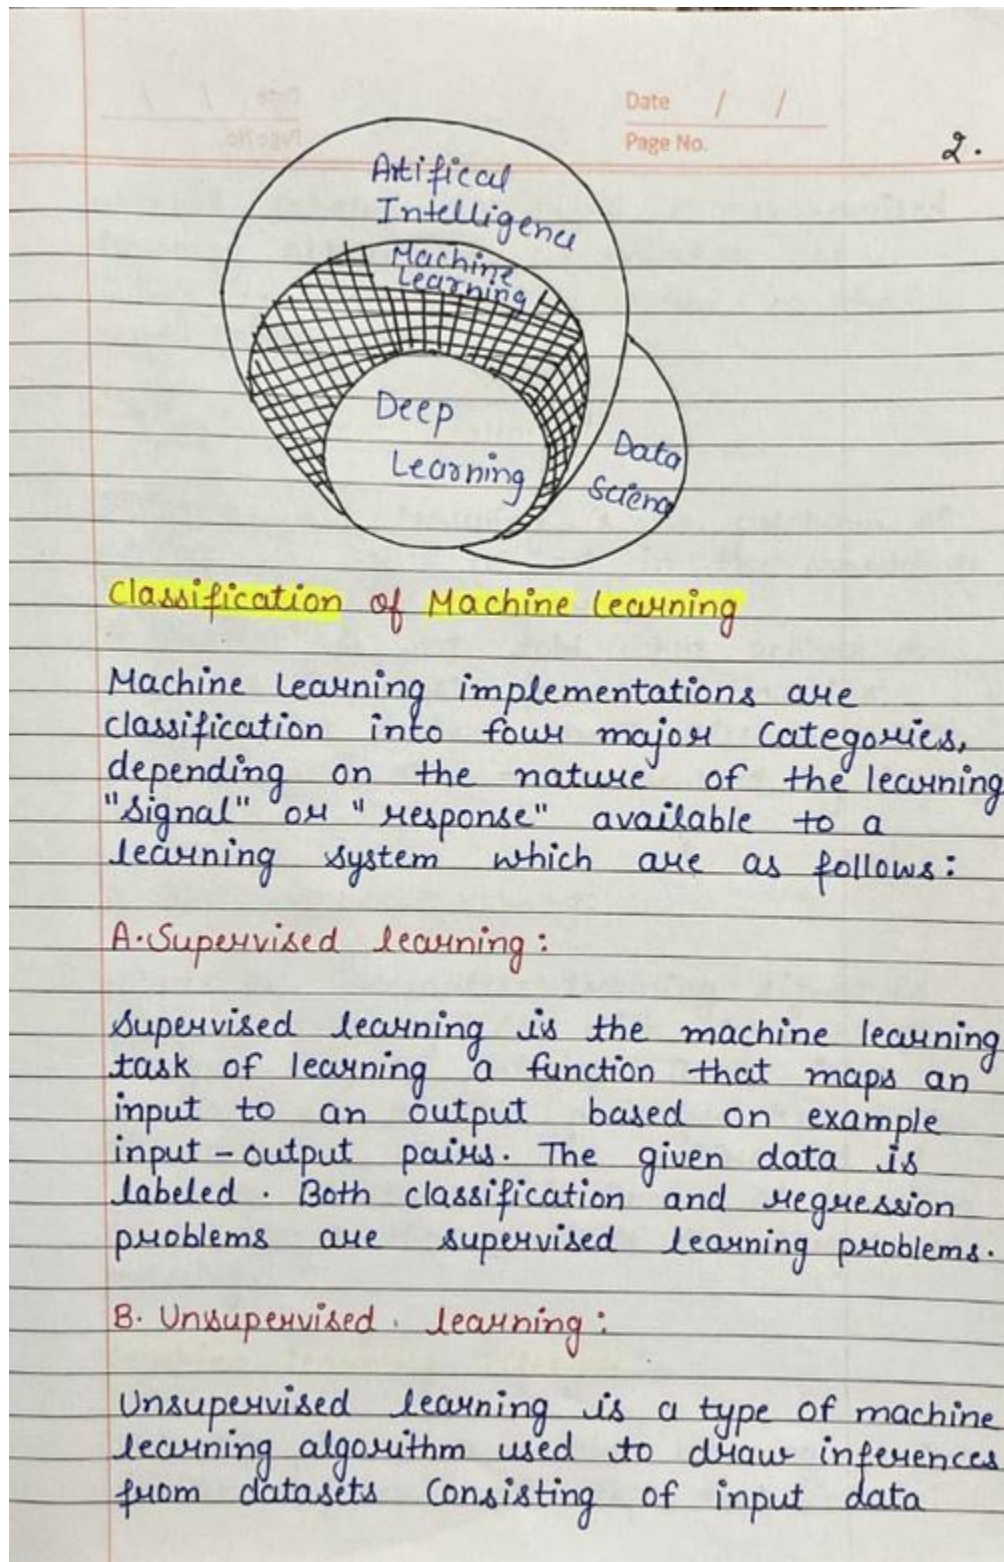 Date / /
Page No.
2.
Artifical
Intelligence
Machine
Learning
Deep
Learning
Data
Scienc
Classification of Machine Learning
Machine Learning implementations are
classification into four major Categories,
depending on the nature of the learning
"signal" or "response" available to a
learning system which are as follows:
A. Supervised learning:
Supervised learning is the machine learning
task of learning a function that maps an
input to an output based on example
input-output pairs. The given data is
labeled. Both classification and regression
problems are supervised learning problems.
B. Unsupervised. learning:
Unsupervised learning is a type of machine
learning algorithm used to draw inferences
from datasets Consisting of input data